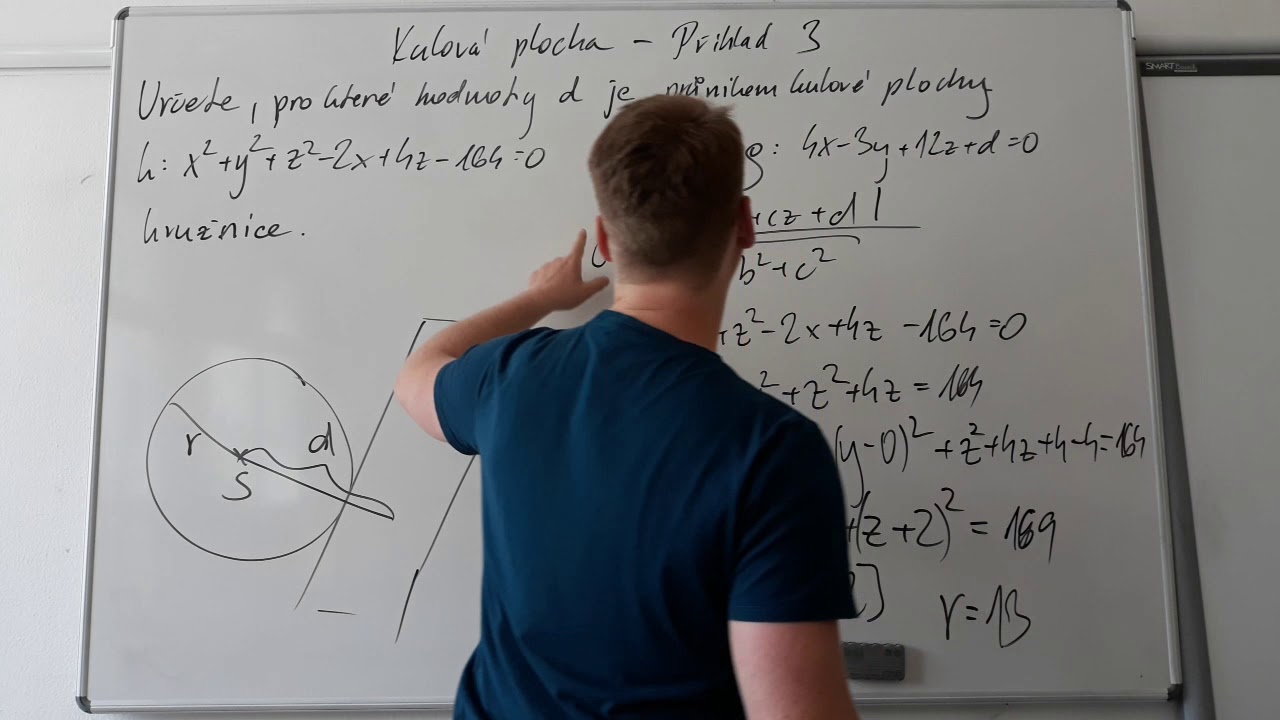 Kulová plocha – Příklad 3
SMART Board
Určete, pro které hodnoty d je průnikem kulové plochy
k: x²+y²+z²-2x+4z-164=0
ρ: 4x-3y+12z+d=0
kružnice.
+cz+d|
b²+c²
+z²-2x+4z-164=0
²+z²+4z=164
(y-0)²+z²+4z+4-4=164
+(z+2)²=169
]
r=13
r
d
S